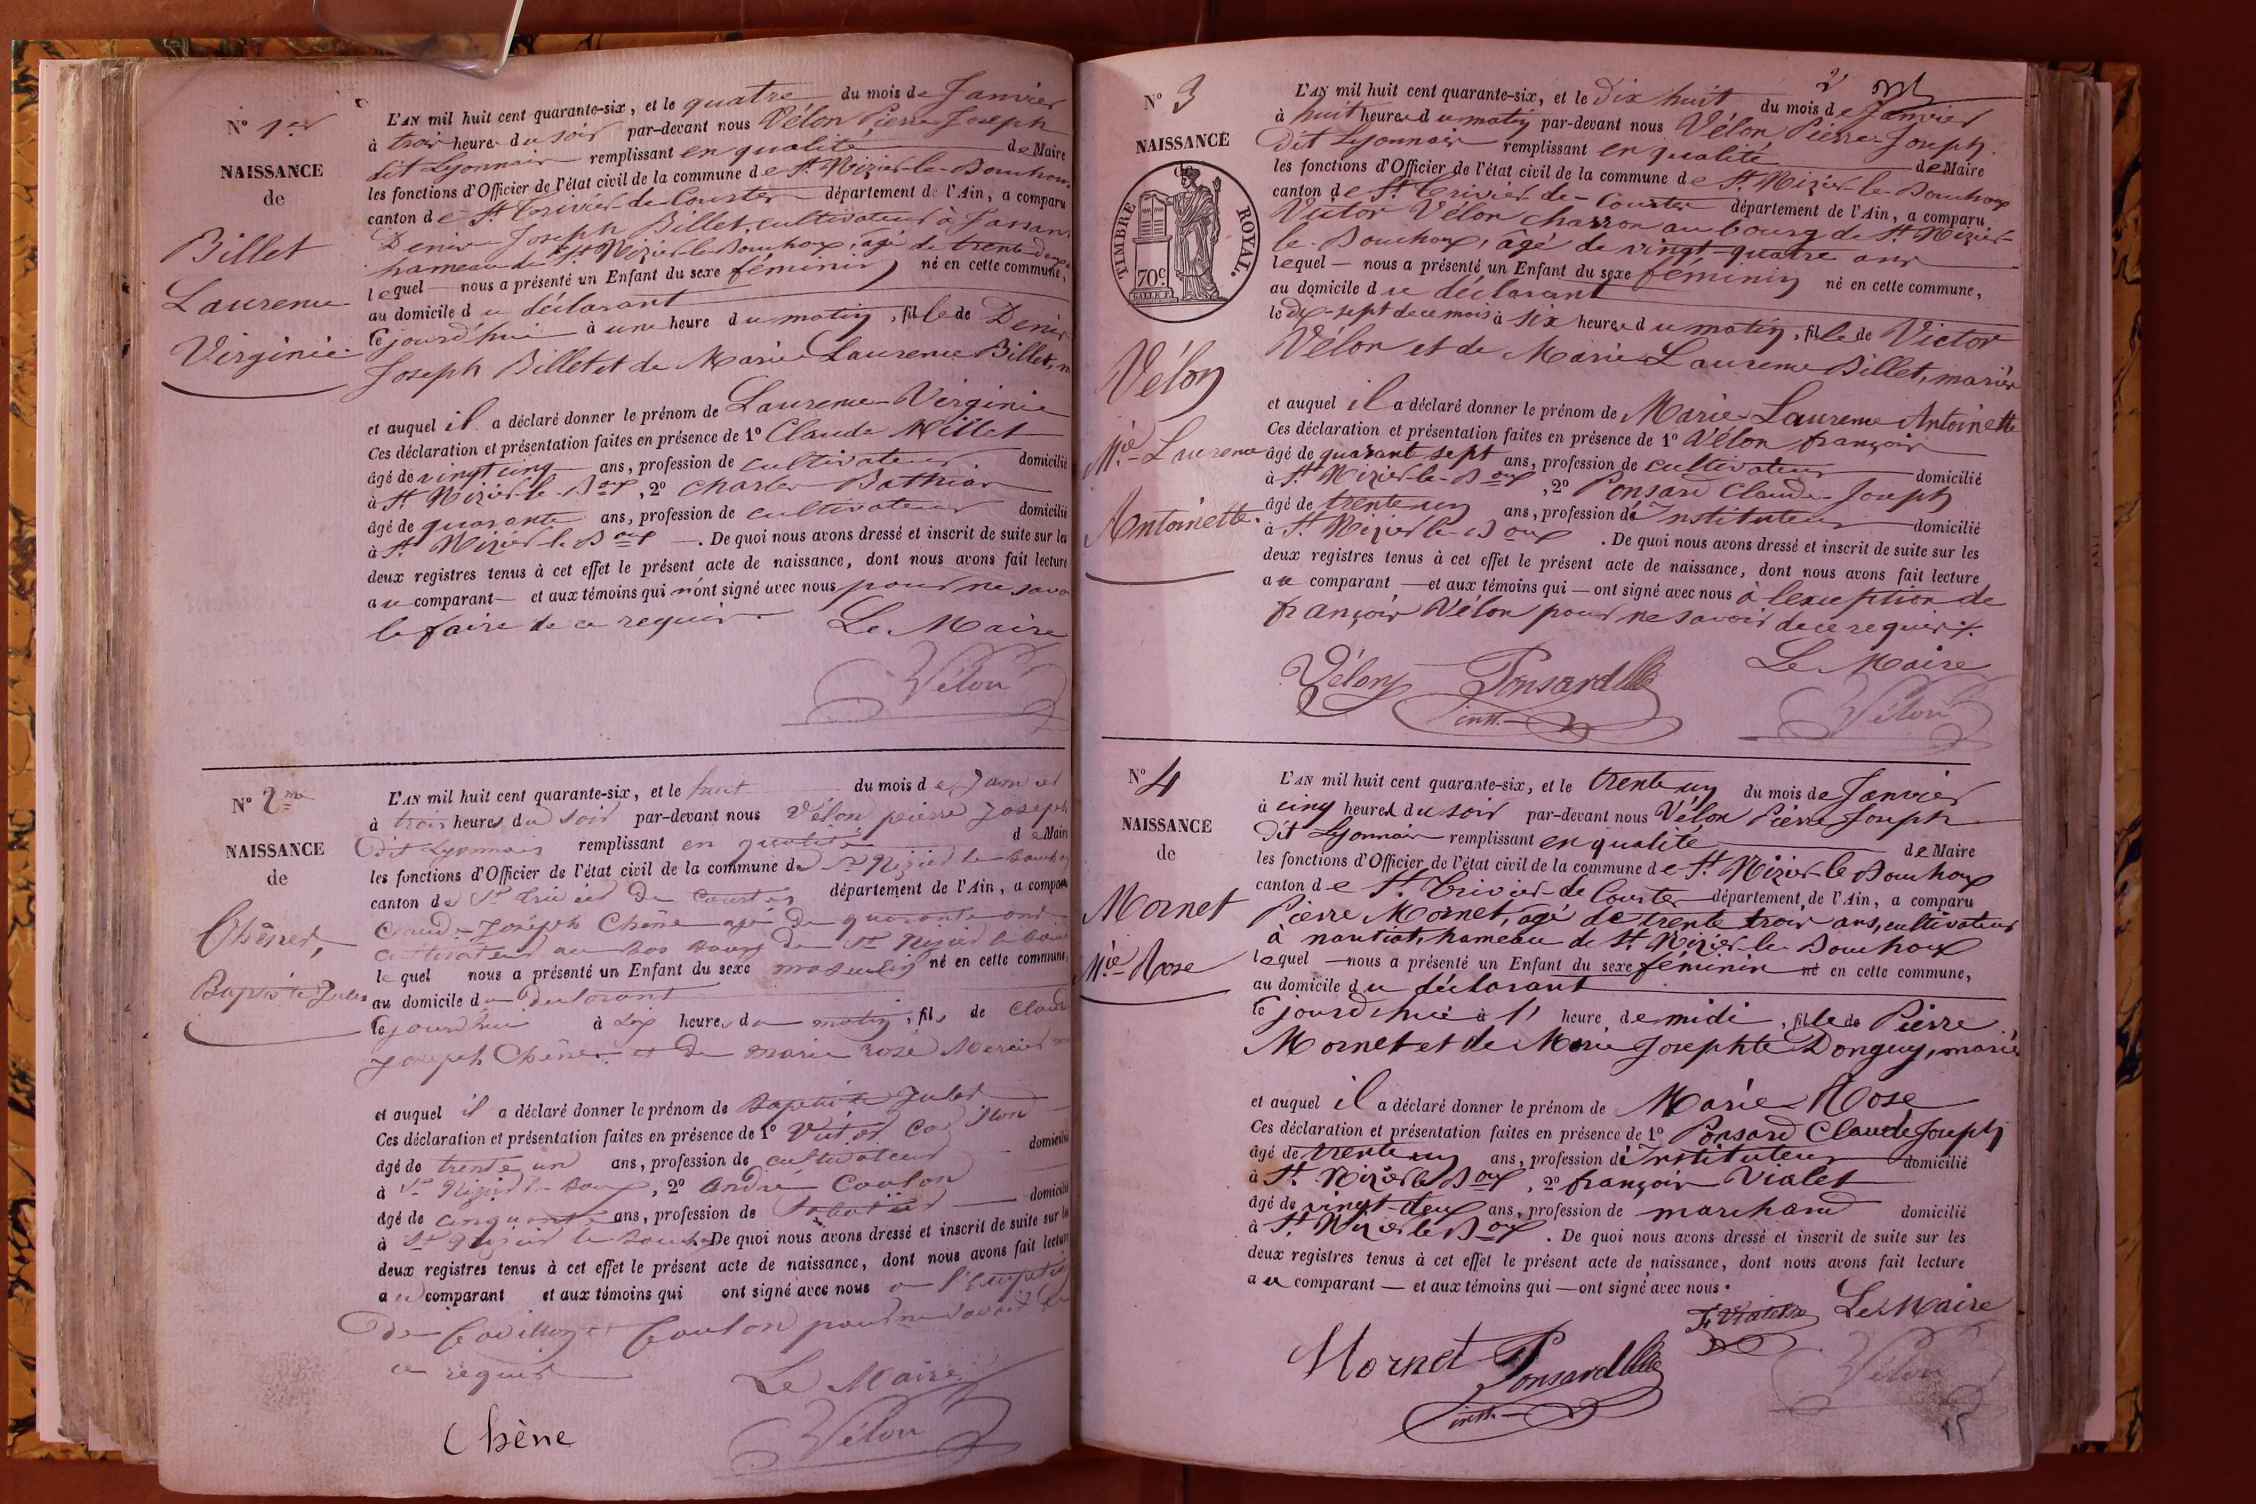 N° 1er
NAISSANCE
de
Billet
Laurence
Virginie
L'AN mil huit cent quarante-six, et le quatre du mois de Janvier
à trois heures du soir par-devant nous Vélon Pierre Joseph
dit Lyonnais remplissant en qualité de Maire
les fonctions d'Officier de l'état civil de la commune de St. Nizier-le-Bouchoux
canton de St. Trivier-de-Courtes département de l'Ain, a comparu
Denis Joseph Billet, cultivateur à
hameau de St Nizier-le-Bouchoux, âgé de trente
lequel nous a présenté un Enfant du sexe féminin né en cette commune,
au domicile du déclarant
ce jourd'hui à une heure du matin, fille de Denis
Joseph Billet et de Marie Laurence Billet,
et auquel il a déclaré donner le prénom de Laurence Virginie
Ces déclaration et présentation faites en présence de 1° Claude Millet
âgé de vingt cinq ans, profession de cultivateur domicilié
à St. Nizier-le-Boux, 2° Charles Bathias
âgé de quarante ans, profession de cultivateur domicilié
à St. Nizier-le-Boux. De quoi nous avons dressé et inscrit de suite sur les
deux registres tenus à cet effet le présent acte de naissance, dont nous avons fait lecture
au comparant et aux témoins qui n'ont signé avec nous pour ne savoir
le faire de ce requis. Le Maire
Vélon
N° 2me
NAISSANCE
de
Chêne,
Baptiste Jules
L'AN mil huit cent quarante-six, et le huit du mois de Janvier
à trois heures du soir par-devant nous Vélon pierre Joseph
dit Lyonnais remplissant en qualité de Maire
les fonctions d'Officier de l'état civil de la commune de St Nizier le bouchoux
canton de St Trivier de Courtes département de l'Ain, a comparu
Claude Joseph Chêne agé de quarante ans
cultivateur au bourg de St Nizier le
lequel nous a présenté un Enfant du sexe masculin né en cette commune,
au domicile du déclarant
ce jourd'hui à dix heures du matin, fils de Claude
Joseph Chêne et de marie rose Mercier
et auquel il a déclaré donner le prénom de Baptiste Jules
Ces déclaration et présentation faites en présence de 1° Victor
âgé de trente un ans, profession de cultivateur domicilié
à St Nizier le Boux, 2° André Coulon
âgé de cinquante ans, profession de Sabotier domicilié
à St Nizier le De quoi nous avons dressé et inscrit de suite sur les
deux registres tenus à cet effet le présent acte de naissance, dont nous avons fait lecture
au comparant et aux témoins qui ont signé avec nous a l'exception
de et Coulon pour ne savoir
ce requis
Le Maire
Chêne
Vélon
2
N° 3
NAISSANCE
de
TIMBRE ROYAL.
70c
Vélon
Mie Laurence
Antoinette.
L'AN mil huit cent quarante-six, et le dix huit du mois de Janvier
à huit heures du matin par-devant nous Vélon, Pierre Joseph
dit Lyonnais remplissant en qualité de Maire
les fonctions d'Officier de l'état civil de la commune de St. Nizier-le-Bouchoux
canton de St. Trivier-de-Courtes département de l'Ain, a comparu
Victor Vélon charron au bourg de St. Nizier-
le-Bouchoux, âgé de vingt-quatre ans
lequel nous a présenté un Enfant du sexe féminin né en cette commune,
au domicile du déclarant
le dix-sept de ce mois à six heures du matin, fille de Victor
Vélon et de Marie Laurence Billet, mariés
et auquel il a déclaré donner le prénom de Marie Laurence Antoinette
Ces déclaration et présentation faites en présence de 1° Vélon françois
âgé de quarante sept ans, profession de cultivateur domicilié
à St. Nizier-le-Boux, 2° Ponsard Claude Joseph
âgé de trente un ans, profession d'Instituteur domicilié
à St. Nizier-le-Boux. De quoi nous avons dressé et inscrit de suite sur les
deux registres tenus à cet effet le présent acte de naissance, dont nous avons fait lecture
au comparant et aux témoins qui ont signé avec nous à l'exception de
françois Vélon pour ne savoir de ce requis.
Le Maire
Vélon Ponsard
instr. Vélon
N° 4
NAISSANCE
de
Mornet
Mie Rose
L'AN mil huit cent quarante-six, et le trente un du mois de Janvier
à cinq heures du soir par-devant nous Vélon Pierre Joseph
dit Lyonnais remplissant en qualité de Maire
les fonctions d'Officier de l'état civil de la commune de St. Nizier-le Bouchoux
canton de St. Trivier-de Courtes département de l'Ain, a comparu
Pierre Mornet, âgé de trente trois ans, cultivateur
à nantiat, hameau de St. Nizier-le Bouchoux
lequel nous a présenté un Enfant du sexe féminin né en cette commune,
au domicile du déclarant
ce jourd'hui à l' heure de midi, fille de Pierre
Mornet et de Marie Josephte Donguy, mariés
et auquel il a déclaré donner le prénom de Marie Rose
Ces déclaration et présentation faites en présence de 1° Ponsard Claude Joseph
âgé de trente un ans, profession d'Instituteur domicilié
à St. Nizier le Boux, 2° françois Vialet
âgé de vingt-deux ans, profession de marchand domicilié
à St. Nizier le Boux. De quoi nous avons dressé et inscrit de suite sur les
deux registres tenus à cet effet le présent acte de naissance, dont nous avons fait lecture
au comparant et aux témoins qui ont signé avec nous.
Le Maire
Mornet Ponsard
instr. Vélon